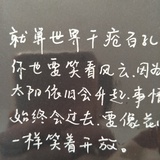 就算世界千疮百孔
你也要笑着看风云，因为
太阳依旧会升起，事情
始终会过去，要像花
一样笑着开放。